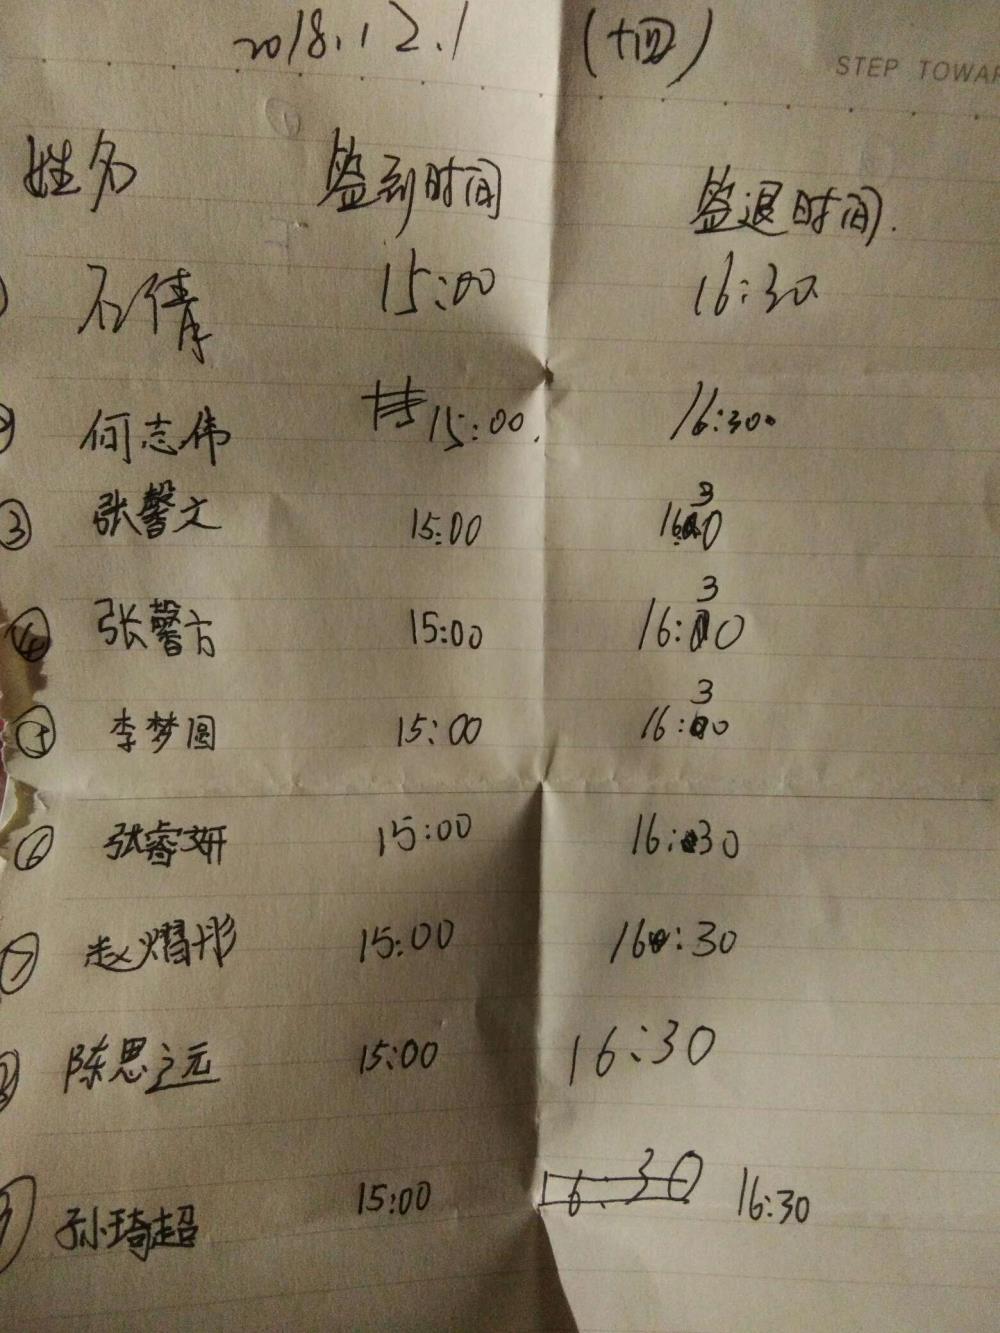 2018.12.1 (十四)
STEP TOWAR
姓名 监到时间 监退时间.
石倩 15:00 16:30
② 何志伟 15:00. 16:30
③ 张馨文 15:00 16:30
④ 张馨方 15:00 16:30
⑤ 李梦圆 15:00 16:30
⑥ 张睿妍 15:00 16:30
⑦ 赵熠彤 15:00 16:30
⑧ 陈思远 15:00 16:30
⑨ 孙琦超 15:00 16:30 16:30